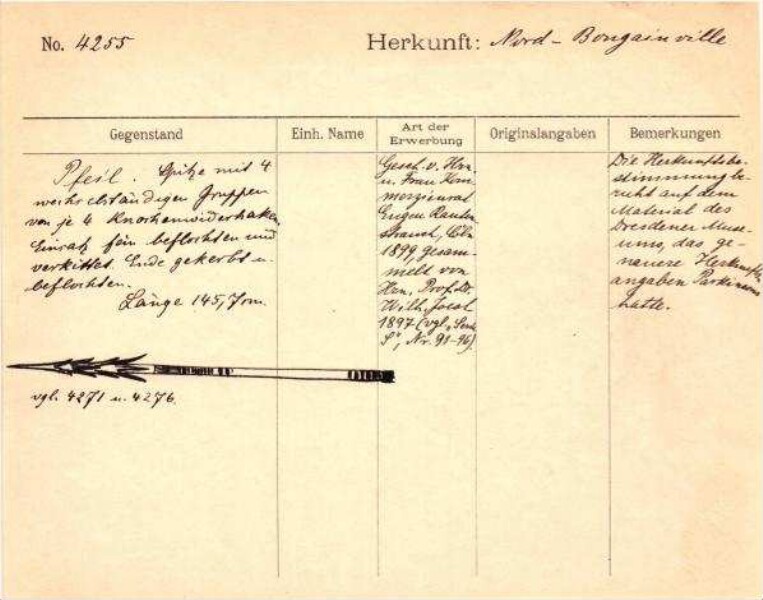 No. 4255
Herkunft: Nord-Bougainville
Gegenstand
Einh. Name
Art der Erwerbung
Originalangaben
Bemerkungen
Pfeil. Spitze mit 4
wechselständigen Gruppen
von je 4 Knochenwiderhaken,
Einsatz fein beflochten und
verkittet. Ende gekerbt u.
beflochten.
Länge 145,7 cm.
vgl. 4271 u. 4276.
Gesch. v. Hrn.
u. Frau Kom-
merzienrat
Eugen Rauten-
strauch, Cöln
1899, gesam-
melt von
Hrn. Prof. Dr.
Wilh. Joest
1897 (vgl.
S", Nr. 91-96)
Die Herkunftsbe-
stimmung be-
ruht auf dem
Material des
Dresdener Muse-
ums, das ge-
nauere Herkunfts-
angaben Parkinsons
hatte.